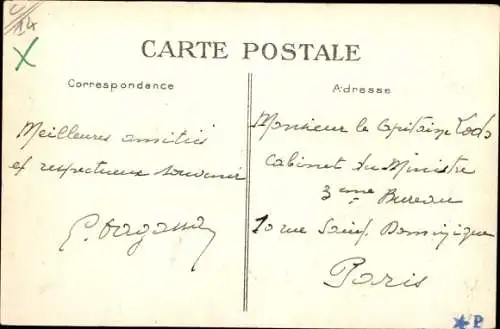 14
CARTE POSTALE
Correspondance
Meilleures amitiés
et respectueux souvenir
Adresse
Monsieur le Capitaine
Cabinet du Ministre
3eme Bureau
10 rue Saint Dominique
Paris
P